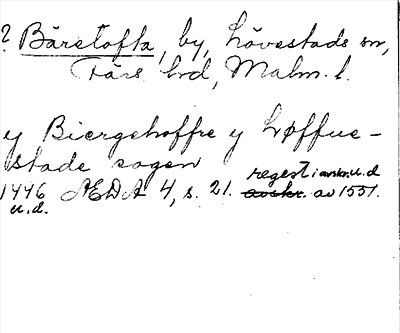 ? Bäretofta, by, Lövestads sn,
Färs hrd, Malm. l.
y Biergehoffre y Løffue-
stade sogen
1446 ÆDA 4, s. 21. regest i avskr. u.d
u.d. avskr. av 1551.